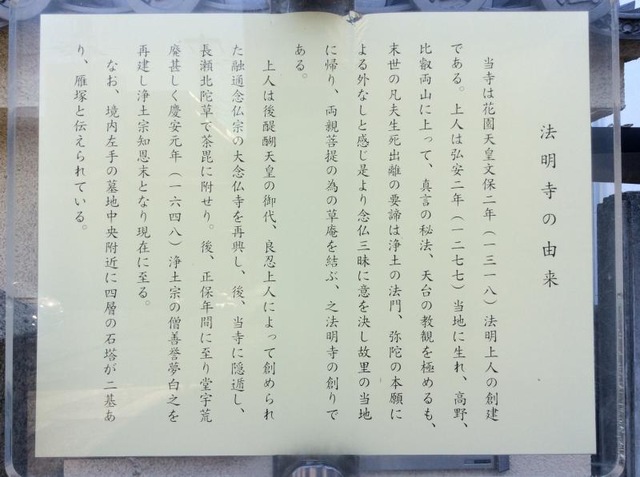 法明寺の由来
当寺は花園天皇文保二年（一三一八）法明上人の創建
である。上人は弘安二年（一二七七）当地に生れ、高野、
比叡両山に上って、真言の秘法、天台の教観を極めるも、
末世の凡夫生死出離の要諦は浄土の法門、弥陀の本願に
よる外なしと感じ是より念仏三昧に意を決し故里の当地
に帰り、両親菩提の為の草庵を結ぶ、之法明寺の創りで
ある。
上人は後醍醐天皇の御代、良忍上人によって創められ
た融通念仏宗の大念仏寺を再興し、後、当寺に隠遁し、
長瀬北陀草で荼毘に附せり。後、正保年間に至り堂宇荒
廃甚しく慶安元年（一六四八）浄土宗の僧善誉夢白之を
再建し浄土宗知恩末となり現在に至る。
なお、境内左手の墓地中央附近に四層の石塔が二基あ
り、雁塚と伝えられている。